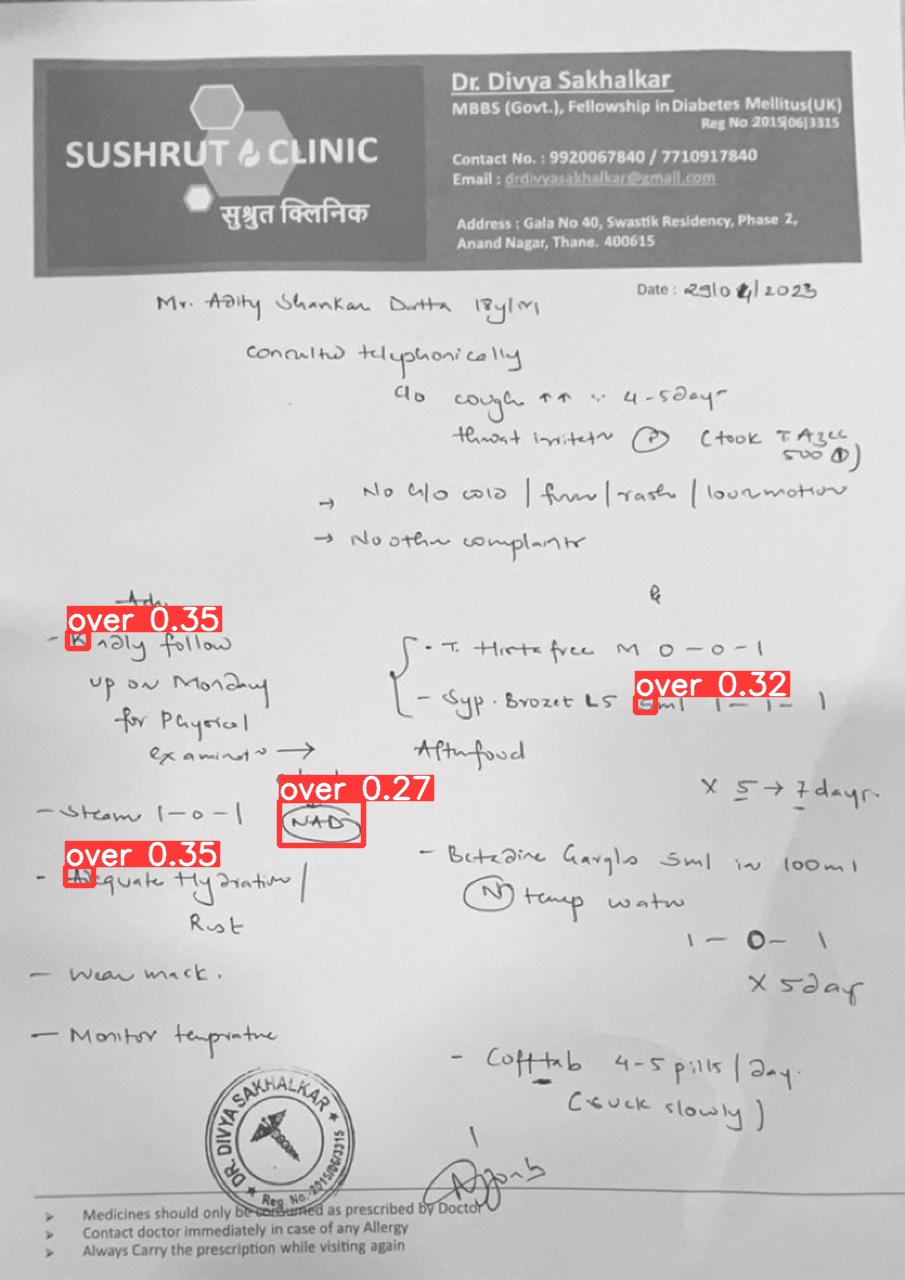 Dr. Divya Sakhalkar
MBBS (Govt.), Fellowship in Diabetes Mellitus(UK)
Reg No 2015|06|3315
SUSHRUT CLINIC
सुश्रुत क्लिनिक
Contact No. : 9920067840 / 7710917840
Email : drdivyasakhalkar@gmail.com
Address : Gala No 40, Swastik Residency, Phase 2,
Anand Nagar, Thane. 400615
Date : 29/04/2023
Mr. Adity Shankar Dutta 18y/M
Consulted telephonically
c/o cough ↑↑ 4-5 days
throat irritatn (P) (took T Azee
500 ①)
→ No c/o cold / fever / rash / loosemotion
→ No other complaints
Adv.
over 0.35
- Kindly follow
up on Monday
for Physical
examinatn →
- Steam 1-0-1
over 0.27
NAD
over 0.35
- Adequate Hydration /
Rest
- Wear mask.
- Monitor temprature
- T. Histafree M 0-0-1
over 0.32
- Syp. Brozet LS 5ml 1-1-1
After food
x 5 → 7 days.
- Betadine Gargles 5ml in 100ml
(N) temp water
1-0-1
x 5 day
- Cofftab 4-5 pills / day.
(suck slowly)
DR. DIVYA SAKHALKAR
Reg. No.-2015/06/3315
➤ Medicines should only be consumed as prescribed by Doctor
➤ Contact doctor immediately in case of any Allergy
➤ Always Carry the prescription while visiting again